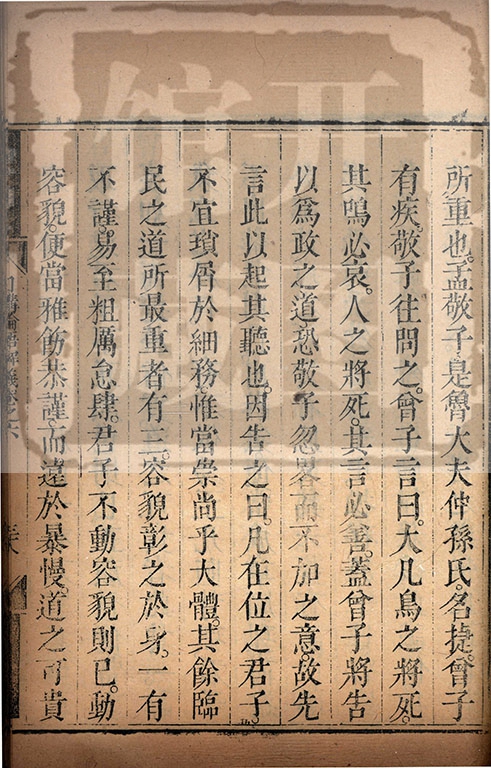 所重也。孟敬子是魯大夫仲孫氏。名捷。曾子
有疾。敬子往問之。曾子言曰。大凡鳥之將死。
其鳴必哀。人之將死。其言必善。蓋曾子將告
以爲政之道恐敬子忽畧而不加之意。故先
言此以起其聽也。因告之曰。凡在位之君子
不宜瑣屑於細務惟當崇尚乎大體。其餘臨
民之道所最重者有三。容貌彰之於身。一有
不謹。易至粗厲怠肆。君子不動容貌則已。動
容貌。便當雅飭恭謹。而遠於暴慢。道之可貴